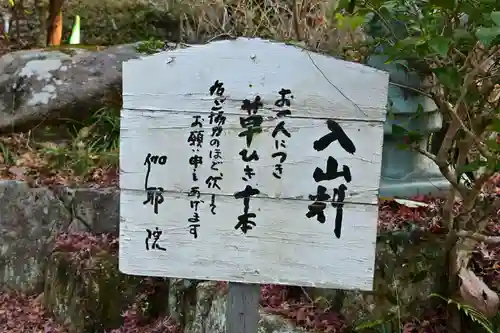 入山料
お一人につき
草ひき十本
右ご協力のほど伏して
お願い申しあげます
伽耶院